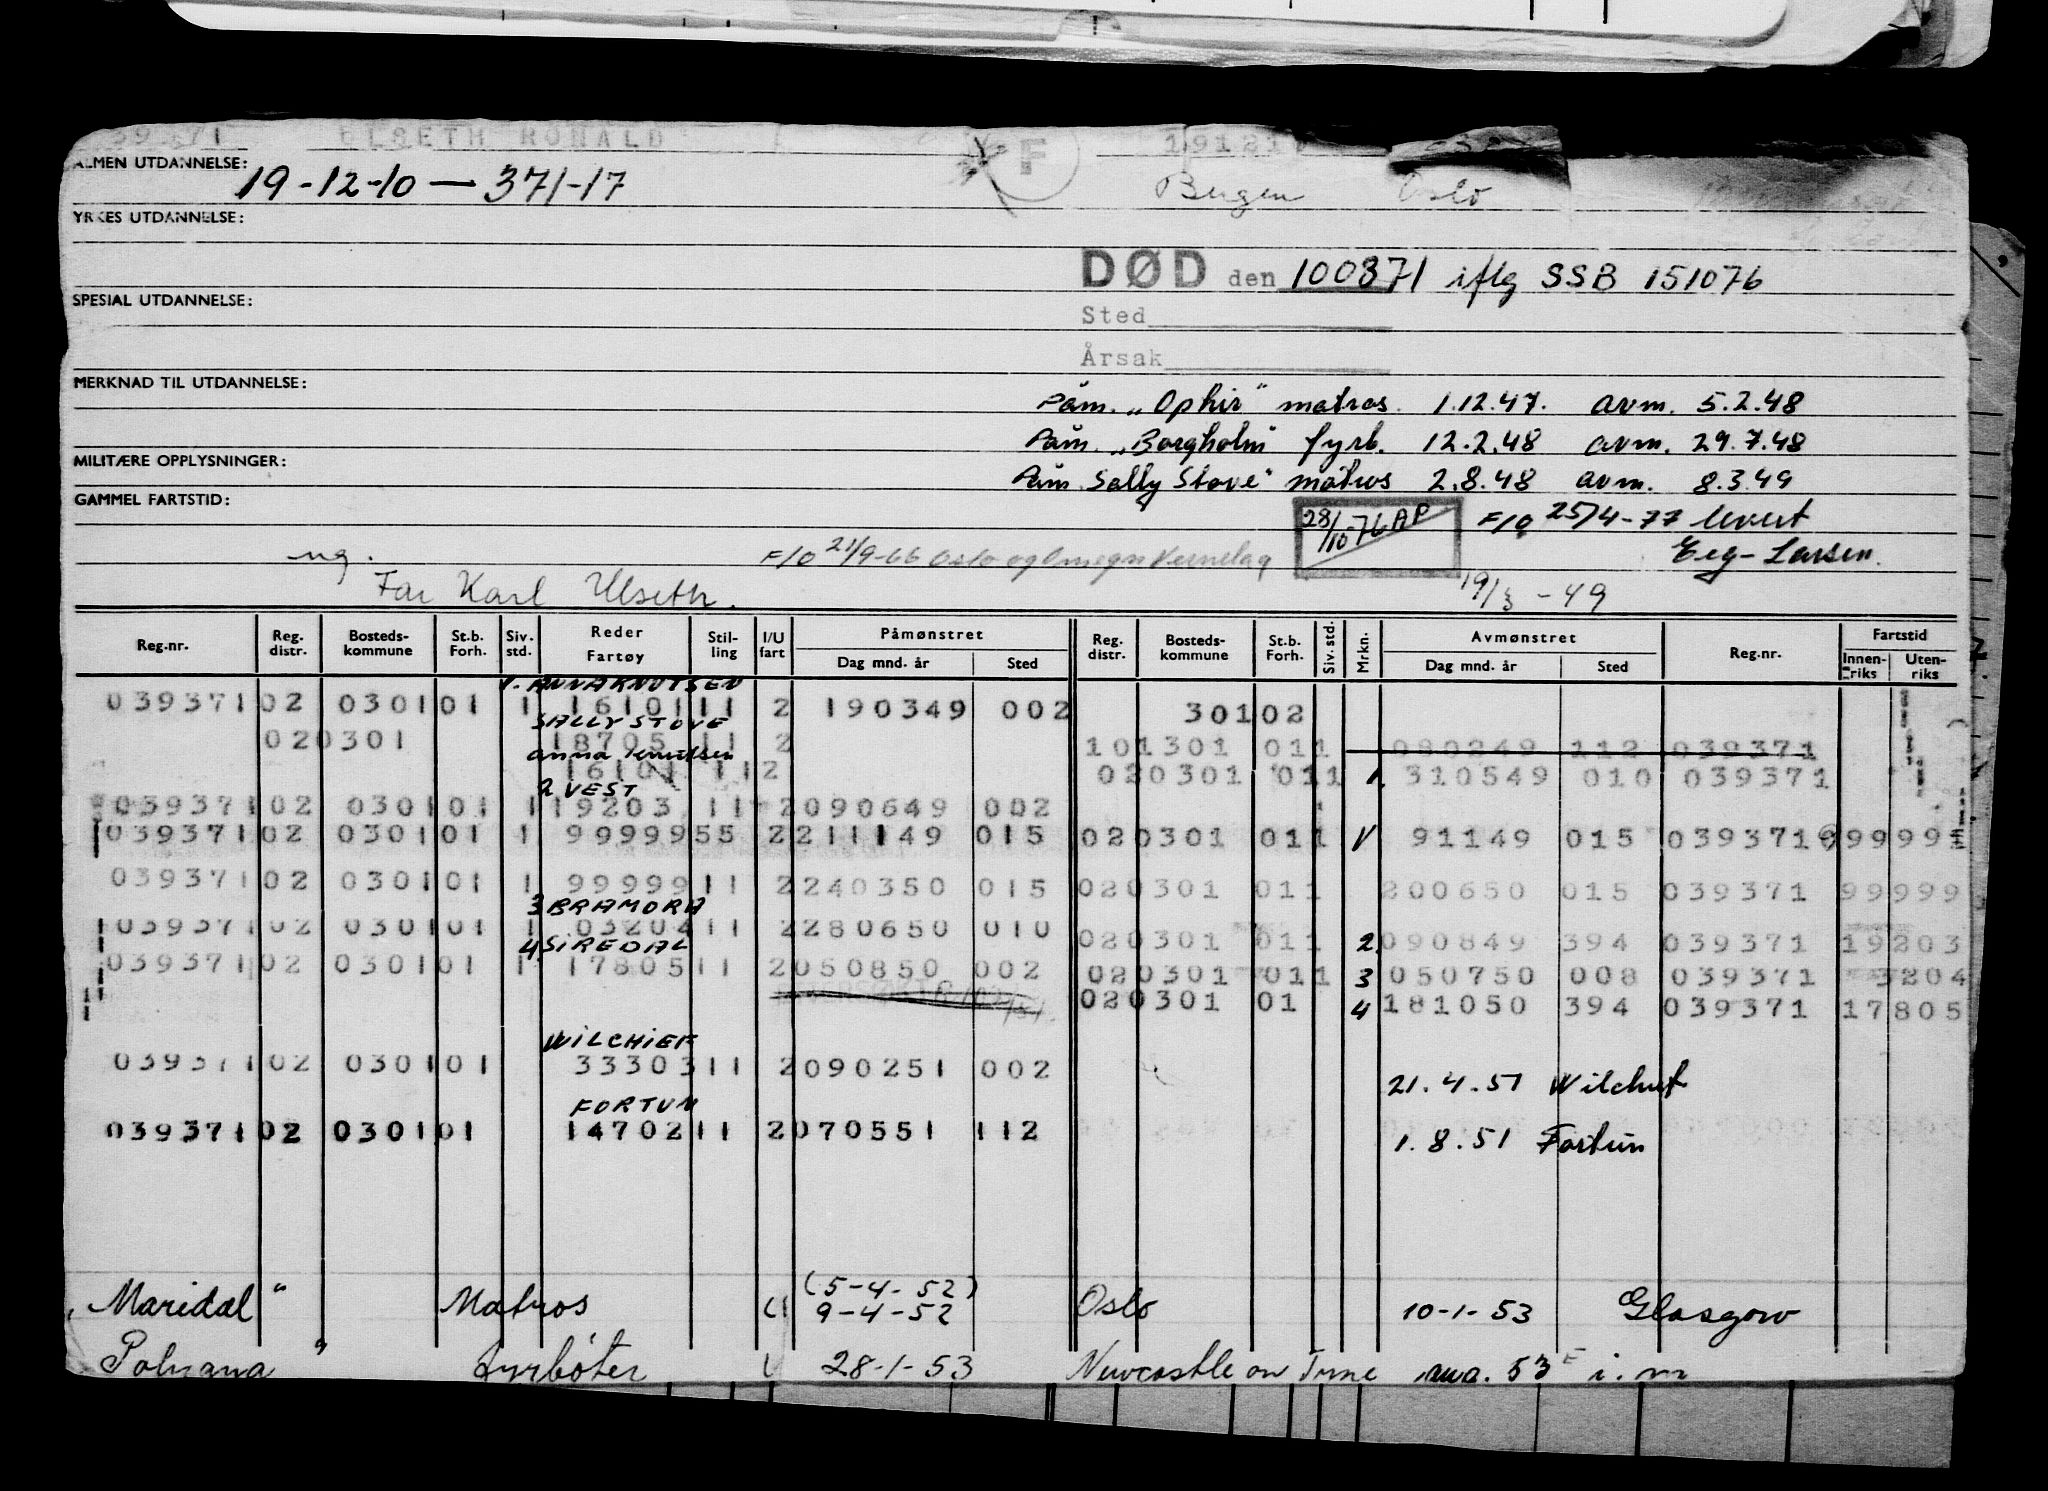 ULSETH RONALD
ALMEN UTDANNELSE: 19-12-10 — 371-17
F
Bergen Oslo
YRKES UTDANNELSE:
DØD den 100871 iflg SSB 151076
SPESIAL UTDANNELSE:
Sted
Årsak
MERKNAD TIL UTDANNELSE:
Påm. „Ophir" matros. 1.12.47. avm. 5.2.48
Påm. „Borgholm" fyrb. 12.2.48 avm. 29.7.48
MILITÆRE OPPLYSNINGER:
Påm. Sally Stove" matros 2.8.48 avm. 8.3.49
GAMMEL FARTSTID:
28/10-76 AP
F/O 25/4-77 levert
ug. F/O 21/9-66 Oslo og Omegn Vernelag
Eeg-Larsen.
Far Karl Ulseth.
19/3-49
Reg.nr. Reg. distr. Bosteds-kommune St.b. Forh. Siv. std. Reder Fartøy Stil-ling I/U fart Påmønstret Dag mnd. år Sted Reg. distr. Bosteds-kommune St.b. Forh. Siv. std. Mrkn. Avmønstret Dag mnd. år Sted Reg.nr. Fartstid Innen-riks Uten-riks
1. ANNA KNUTSEN
039371 02 0301 01 1 16101 11 2 190349 002 301 02
SALLY STOVE
020301 18705 11 2 101301 011 080249 112 039371
Anna Knutsen
16101 11 2 020301 011 1. 310549 010 039371
2 VEST
039371 02 0301 01 1 19203 11 2 090649 002
039371 02 0301 01 1 99999 55 2 211149 015 020301 011 V 91149 015 039371 99999
039371 02 0301 01 1 99999 11 2 240350 015 020301 011 200650 015 039371 99999
3 BRAMORA
039371 02 0301 01 1 03204 11 2 280650 010 020301 011 2. 090849 394 039371 19203
4 SIREDAL
039371 02 0301 01 1 17805 11 2 050850 002 020301 011 3 050750 008 039371 3204
020301 01 4 181050 394 039371 17805
WILCHIEF
039371 02 0301 01 33303 11 2 090251 002 21.4.51 Wilchief
FORTUN
039371 02 0301 01 14702 11 2 070551 112 1.8.51 Fortun
(5-4-52)
„Maridal" Matros U 9-4-52 Oslo 10-1-53 Glasgow
Polyana" Fyrbøter U 28-1-53 Newcastle on Tyne 53 i.m